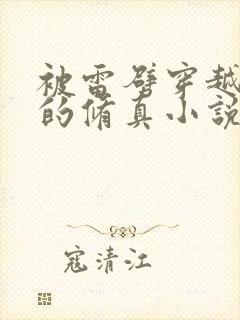 被雷劈穿越
的脩真小説
寇清江